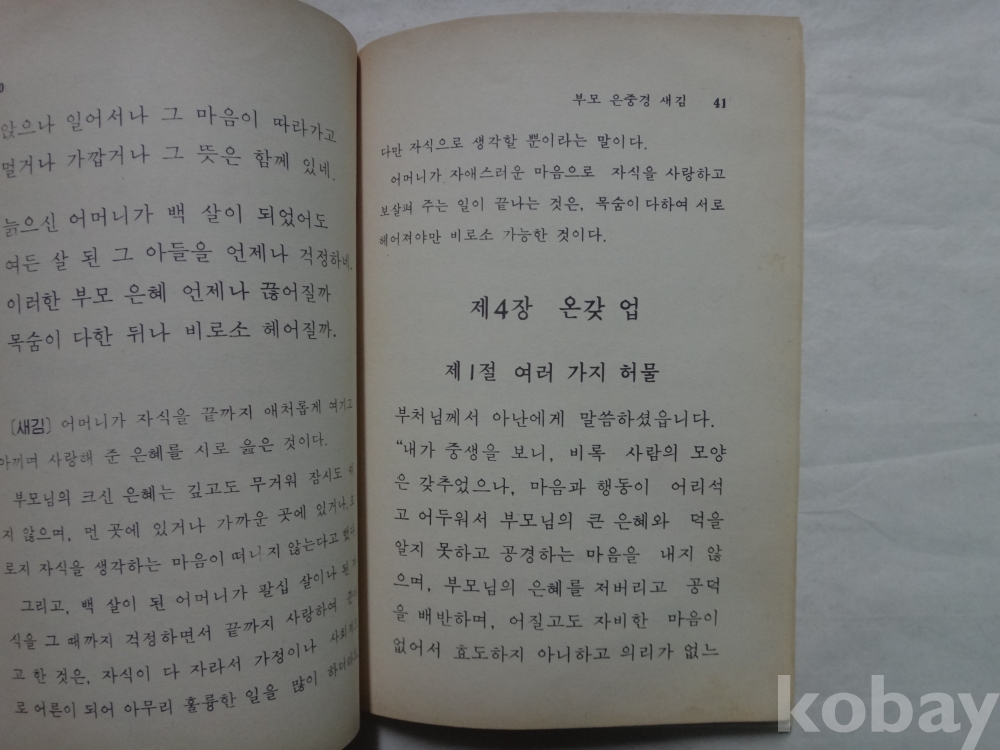 앉으나 일어서나 그 마음이 따라가고
멀거나 가깝거나 그 뜻은 함께 있네.
늙으신 어머니가 백 살이 되었어도
여든 살 된 그 아들을 언제나 걱정하네.
이러한 부모 은혜 언제나 끊어질까
목숨이 다한 뒤나 비로소 헤어질까.
[새김] 어머니가 자식을 끝까지 애처롭게 여기고
아끼며 사랑해 준 은혜를 시로 읊은 것이다.
부모님의 크신 은혜는 깊고도 무거워 잠시도
지 않으며, 먼 곳에 있거나 가까운 곳에 있거나,
로지 자식을 생각하는 마음이 떠나지 않는다고
그리고, 백 살이 된 어머니가 팔십 살이나 된
식을 그 때까지 걱정하면서 끝까지 사랑하여
고 한 것은, 자식이 다 자라서 가정이나
로 어른이 되어 아무리 훌륭한 일을 많이
부모 은중경 새김 41
다만 자식으로 생각할 뿐이라는 말이다.
어머니가 자애스러운 마음으로 자식을 사랑하고
보살펴 주는 일이 끝나는 것은, 목숨이 다하여 서로
헤어져야만 비로소 가능한 것이다.
제4장 온갖 업
제1절 여러 가지 허물
부처님께서 아난에게 말씀하셨읍니다.
“내가 중생을 보니, 비록 사람의 모양
은 갖추었으나, 마음과 행동이 어리석
고 어두워서 부모님의 큰 은혜와 덕을
알지 못하고 공경하는 마음을 내지 않
으며, 부모님의 은혜를 저버리고 공덕
을 배반하며, 어질고도 자비한 마음이
없어서 효도하지 아니하고 의리가 없느
kobay